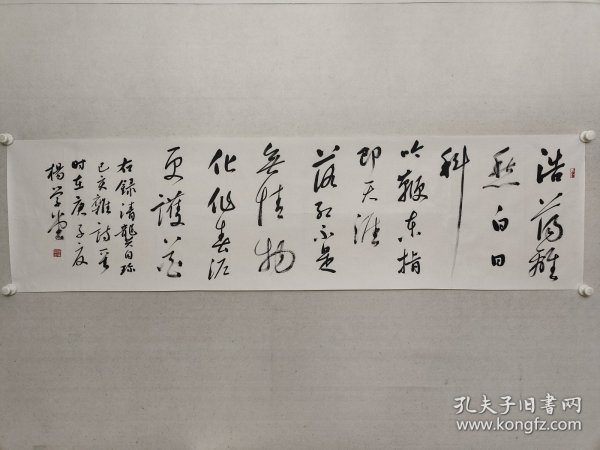 浩荡離
愁白日
斜
吟鞭東指
即天涯
落红不是
無情物
化作春泥
更護花
右録清龔自珍
己亥雜詩一首
时在庚子夏
楊学
孔夫子旧书网
www.kongfz.com